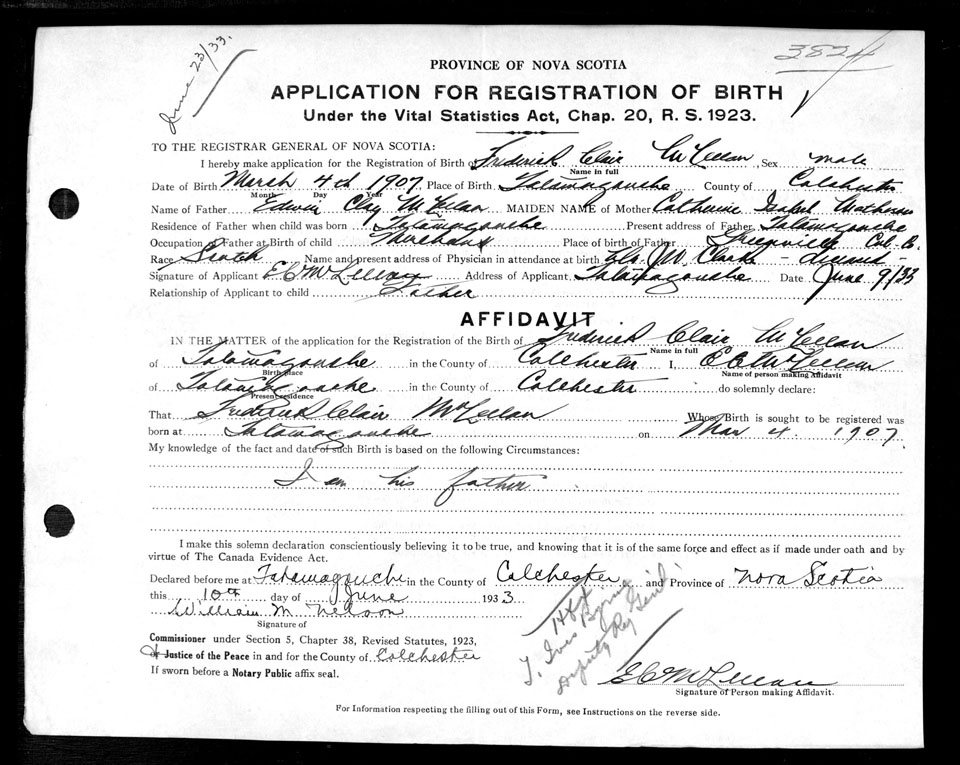 June 23/33.
3824
PROVINCE OF NOVA SCOTIA
APPLICATION FOR REGISTRATION OF BIRTH
Under the Vital Statistics Act, Chap. 20, R. S. 1923.
TO THE REGISTRAR GENERAL OF NOVA SCOTIA:
I hereby make application for the Registration of Birth of Frederick Clair McLellan Sex male
Name in full
Date of Birth March 4th 1907 Place of Birth Tatamagouche County of Colchester
Month Day Year
Name of Father Edwin Clay McLellan MAIDEN NAME of Mother Catherine Isabel Matheson
Residence of Father when child was born Tatamagouche Present address of Father Tatamagouche
Occupation of Father at Birth of child Merchant Place of birth of Father Greenville Col. Co.
Race Scotch Name and present address of Physician in attendance at birth Geo. M. Clark - deceased -
Signature of Applicant E C McLellan Address of Applicant Tatamagouche Date June 9/33
Relationship of Applicant to child Father
AFFIDAVIT
IN THE MATTER of the application for the Registration of the Birth of Frederick Clair McLellan
Name in full
of Tatamagouche in the County of Colchester I, E C McLellan
Birth place Name of person making Affidavit
of Tatamagouche in the County of Colchester do solemnly declare:
Present residence
That Frederick Clair McLellan Whose Birth is sought to be registered was
born at Tatamagouche on Mar 4. 1907
My knowledge of the fact and date of such Birth is based on the following Circumstances:
I am his father
I make this solemn declaration conscientiously believing it to be true, and knowing that it is of the same force and effect as if made under oath and by
virtue of The Canada Evidence Act.
Declared before me at Tatamagouche in the County of Colchester and Province of Nova Scotia
this 10th day of June 1933
William M. Nelson
Signature of
Commissioner under Section 5, Chapter 38, Revised Statutes, 1923,
Justice of the Peace in and for the County of Colchester
If sworn before a Notary Public affix seal.
Deputy Reg Gen'l
E C McLellan
Signature of Person making Affidavit.
For Information respecting the filling out of this Form, see Instructions on the reverse side.